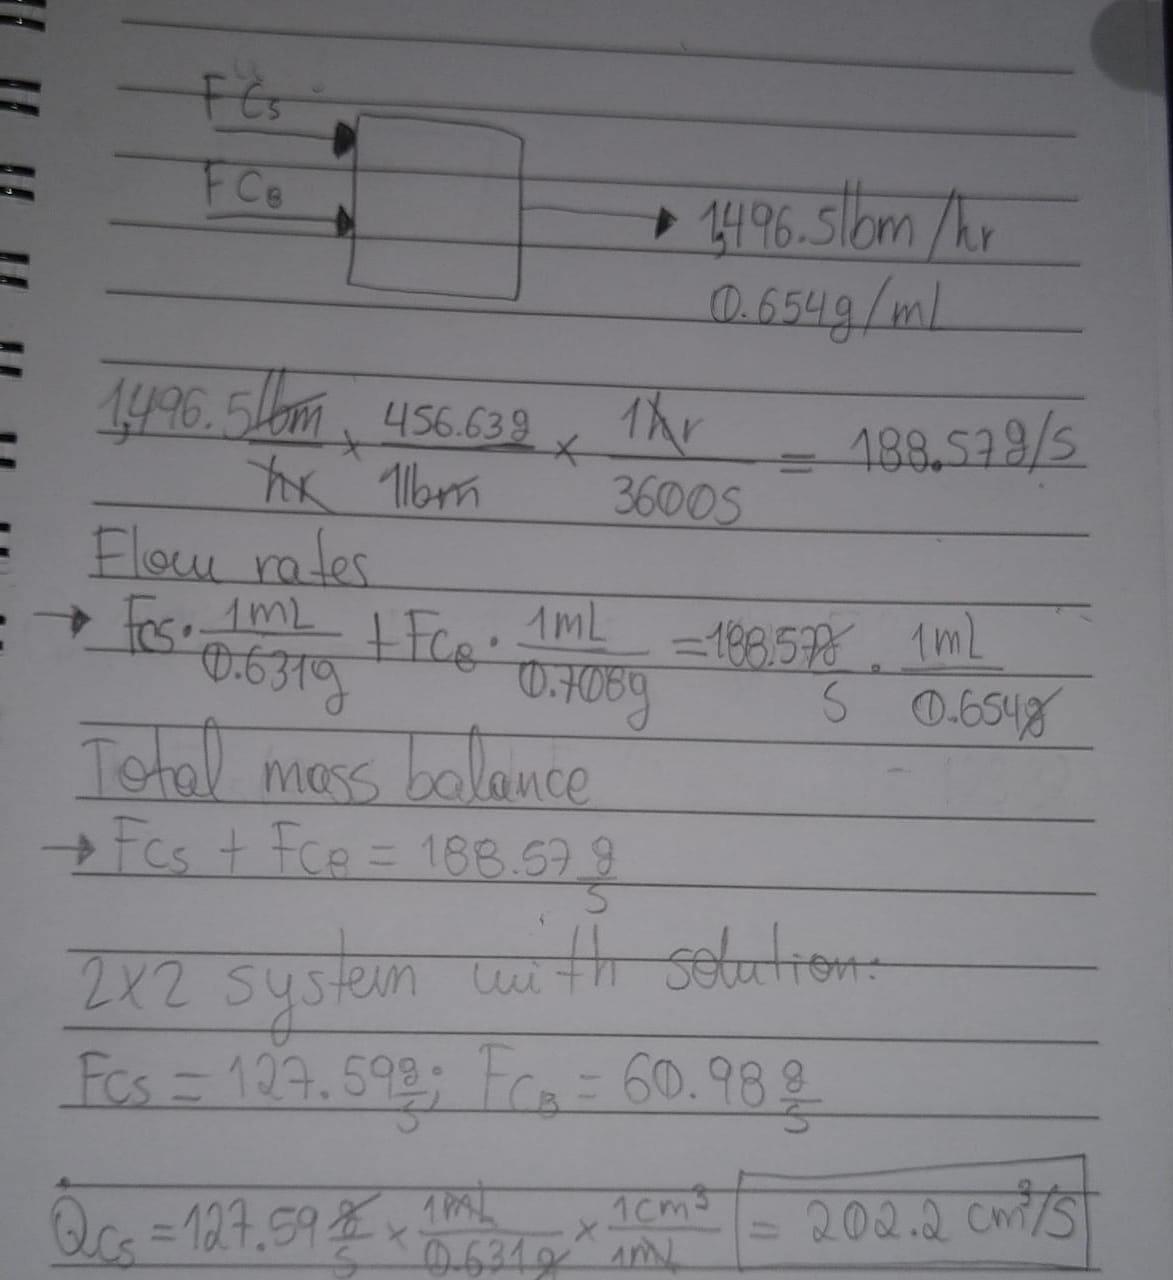 FC₅
FC₈
1,496.5lbm/hr
0.654g/ml
1,496.5lbm/hr × 456.63g/1lbm × 1hr/3600s = 188.57g/s
Flow rates
→ Fc₅ · 1mL/0.631g + FC₈ · 1mL/0.708g = 188.57g/s · 1ml/0.654g
Total mass balance
→ FC₅ + FC₈ = 188.57 g/s
2x2 system with solution:
FC₅ = 127.59 g/s; FC₈ = 60.98 g/s
Q̇c₅ = 127.59 g/s × 1mL/0.631g × 1cm³/1mL = 202.2 cm³/s